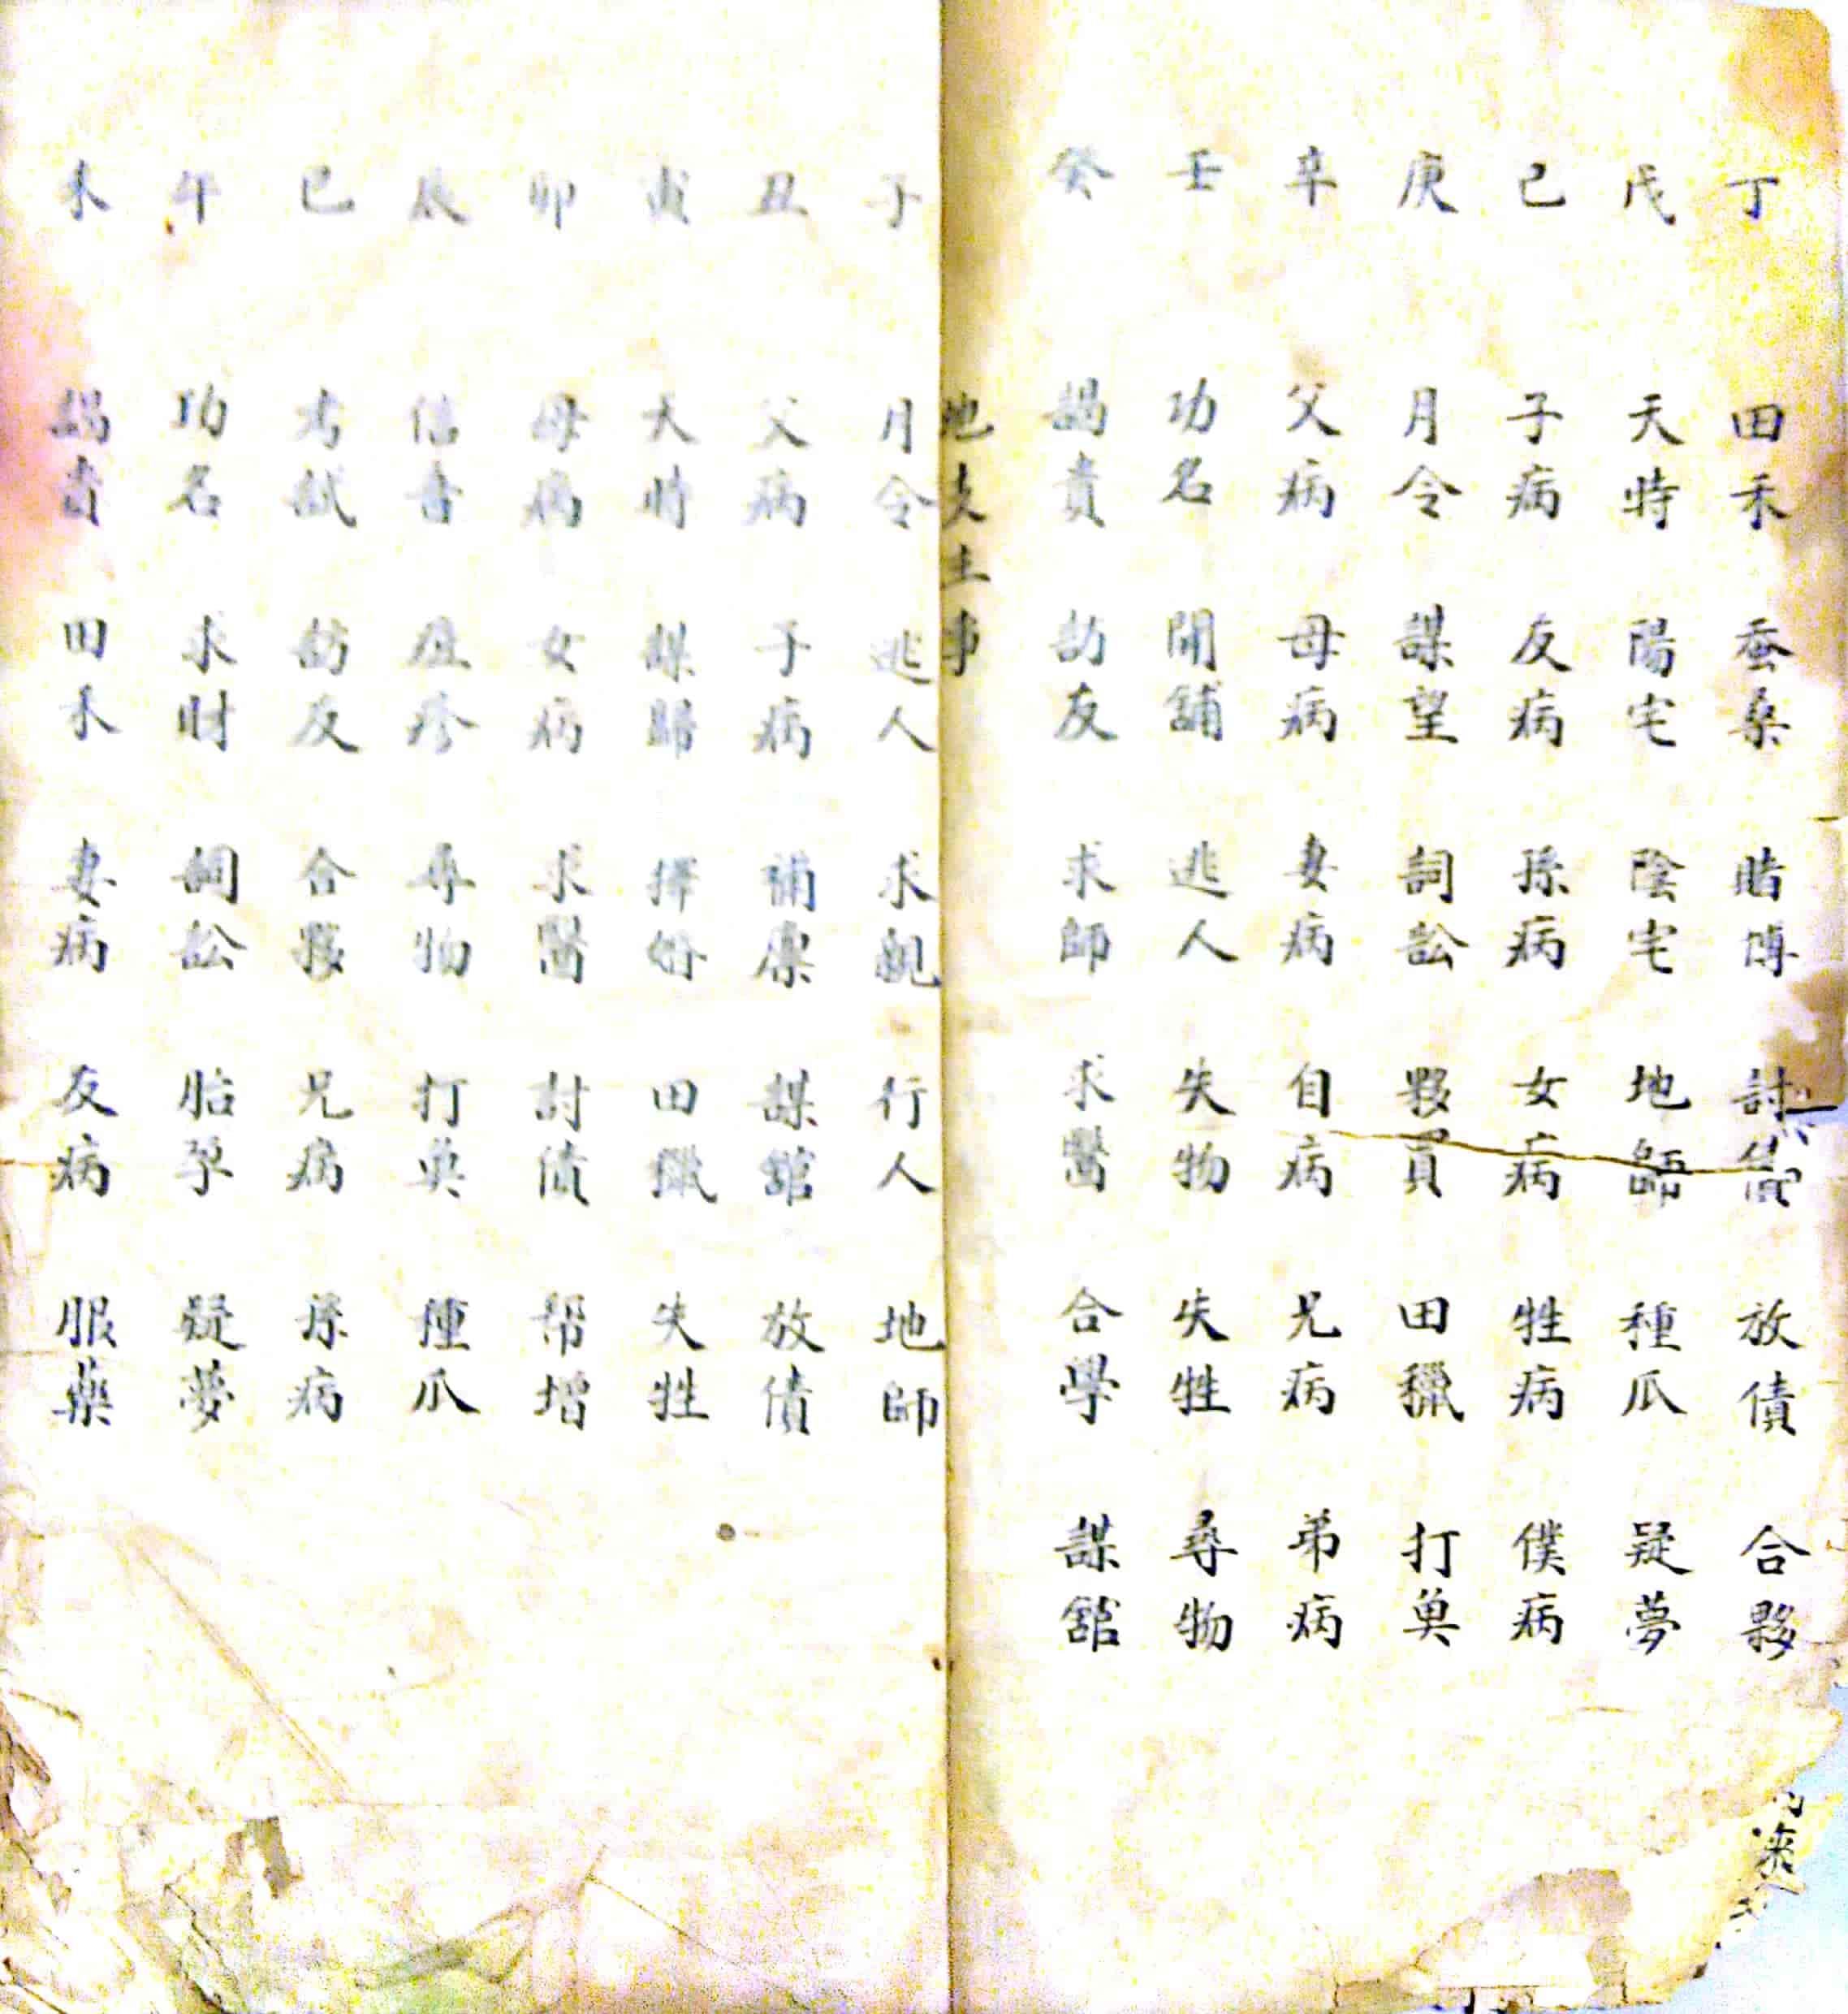 丁 田禾 蚕桑 賭博 討債 放債 合夥
戊 天時 陽宅 陰宅 地師 種瓜 疑夢
己 子病 友病 孫病 女病 牲病 僕病
庚 月令 謀望 詞訟 夥買 田獵 打奧
辛 父病 母病 妻病 自病 兄病 弟病
壬 功名 開舖 逃人 失物 失牲 尋物
癸 謁貴 訪友 求師 求醫 合學 謀舘
地支主事
子 月令 逃人 求親 行人 地師
丑 父病 子病 補廪 謀舘 放債
寅 天時 謀歸 擇婚 田獵 失牲
卯 母病 女病 求醫 討債 帮增
辰 信音 疽疹 尋物 打奧 種瓜
巳 考試 訪友 合夥 兄病 孫病
午 功名 求財 詞訟 胎孕 疑夢
未 謁貴 田禾 妻病 友病 服藥